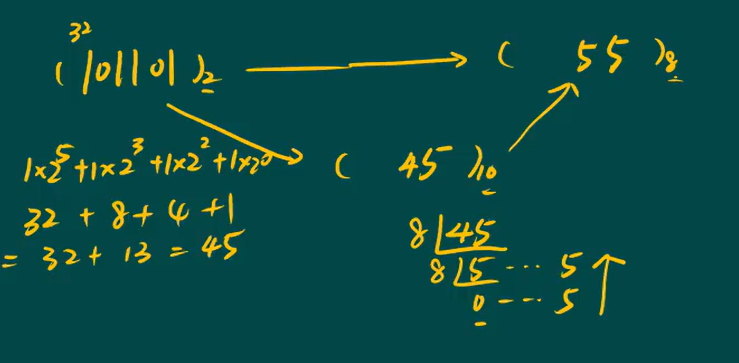 32
(101101)₂ → (55)₈
1×2⁵+1×2³+1×2²+1×2⁰ → (45)₁₀
32 + 8 + 4 + 1
= 32 + 13 = 45
8|45
8|5 ... 5
0 --- 5